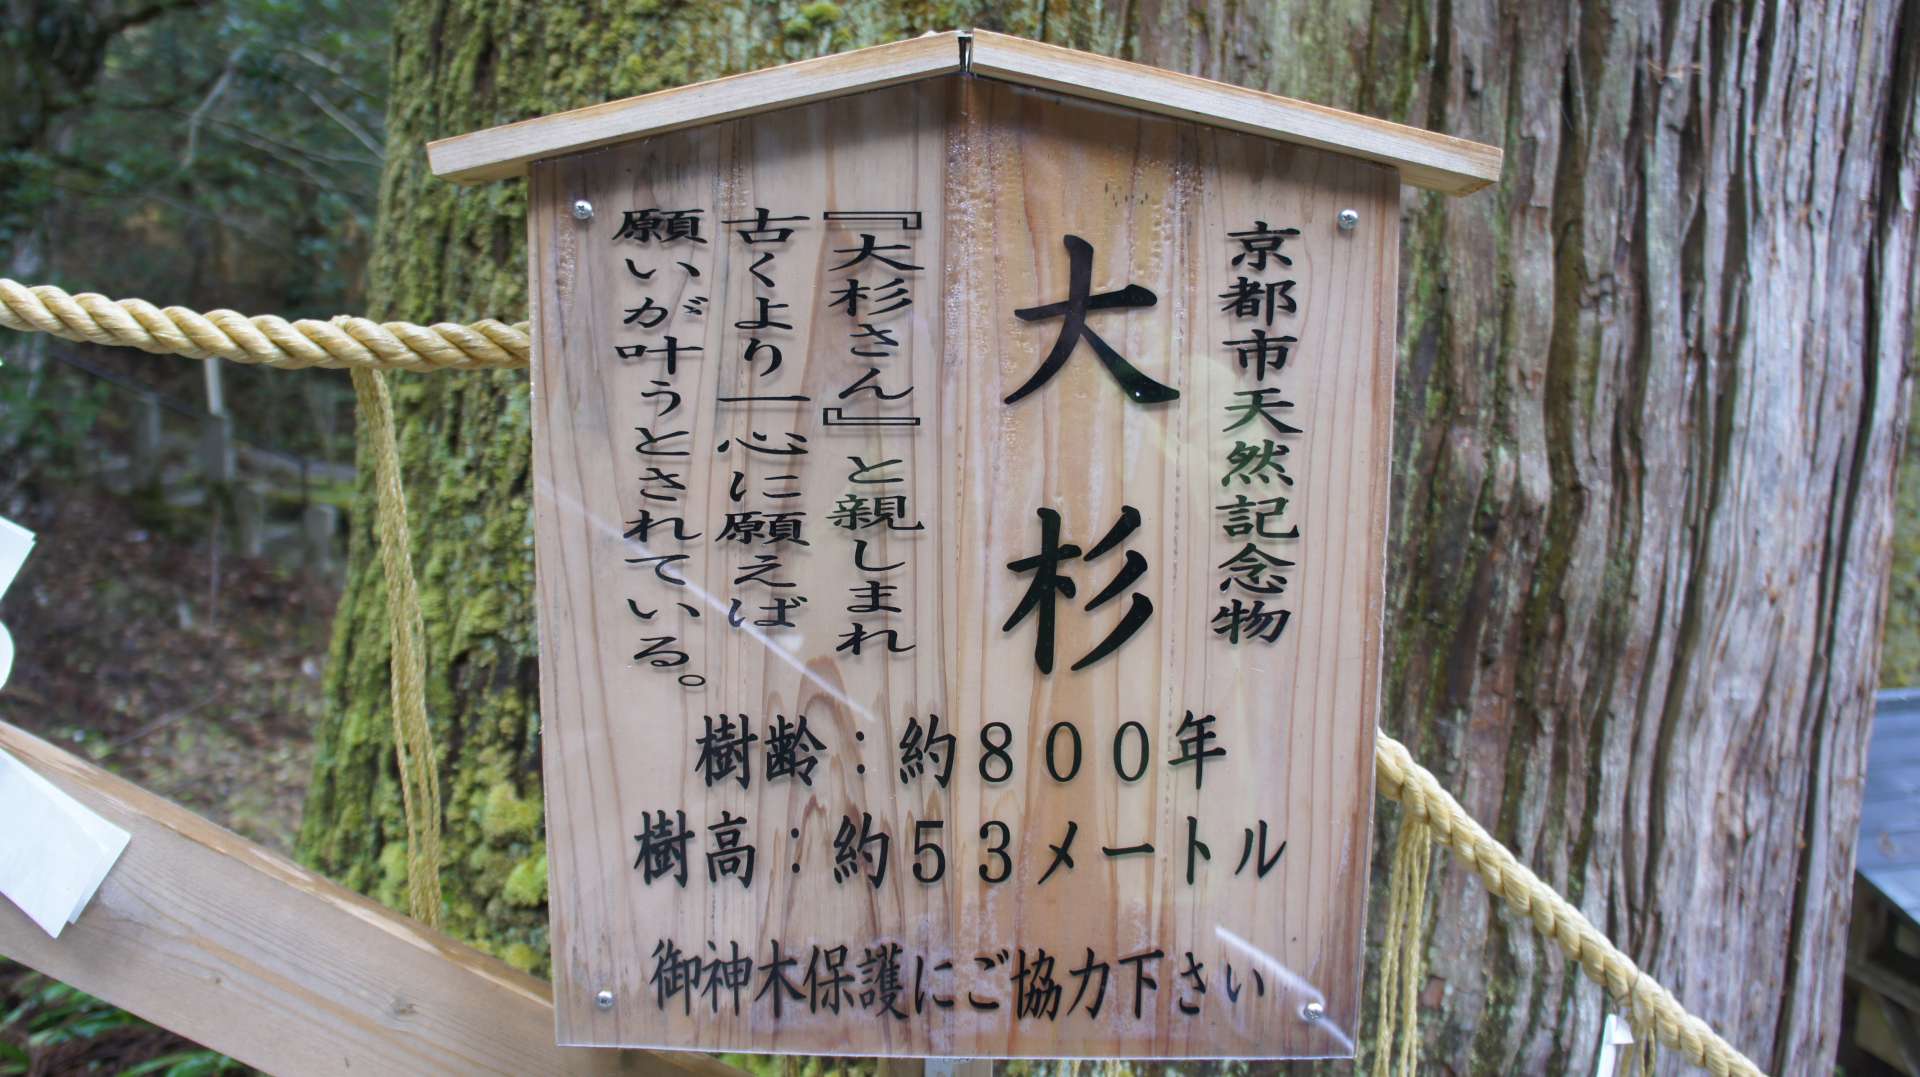 京都市天然記念物
大杉
『大杉さん』と親しまれ
古くより一心に願えば
願いが叶うとされている。
樹齢：約８００年
樹高：約５３メートル
御神木保護にご協力下さい